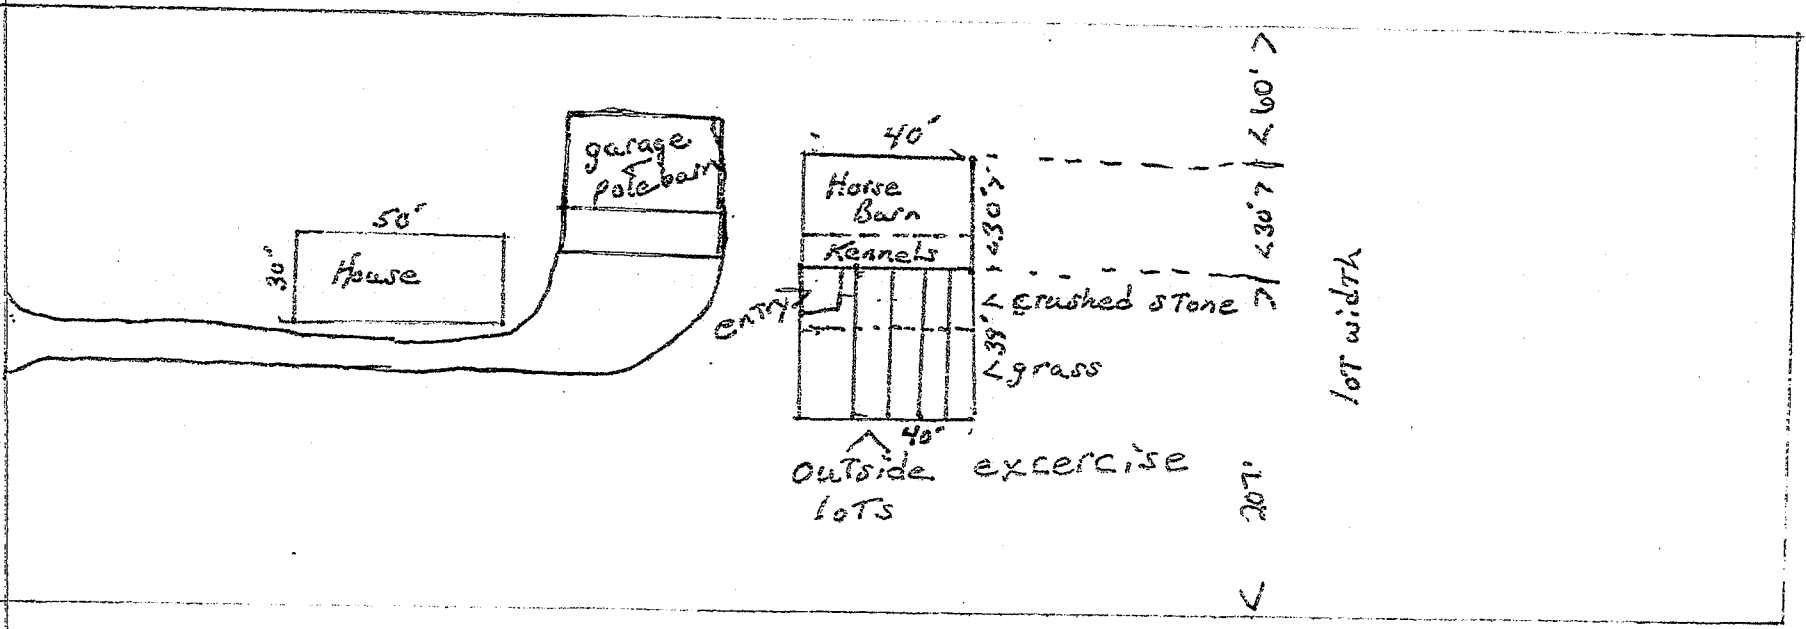 garage
polebarn
50"
30"
House
40"
Horse
Barn
Kennels
<30'>
entry
<38'
< crushed stone
< grass
40"
outside excercise
lots
<60'>
<30'>
< 207' >
lot width